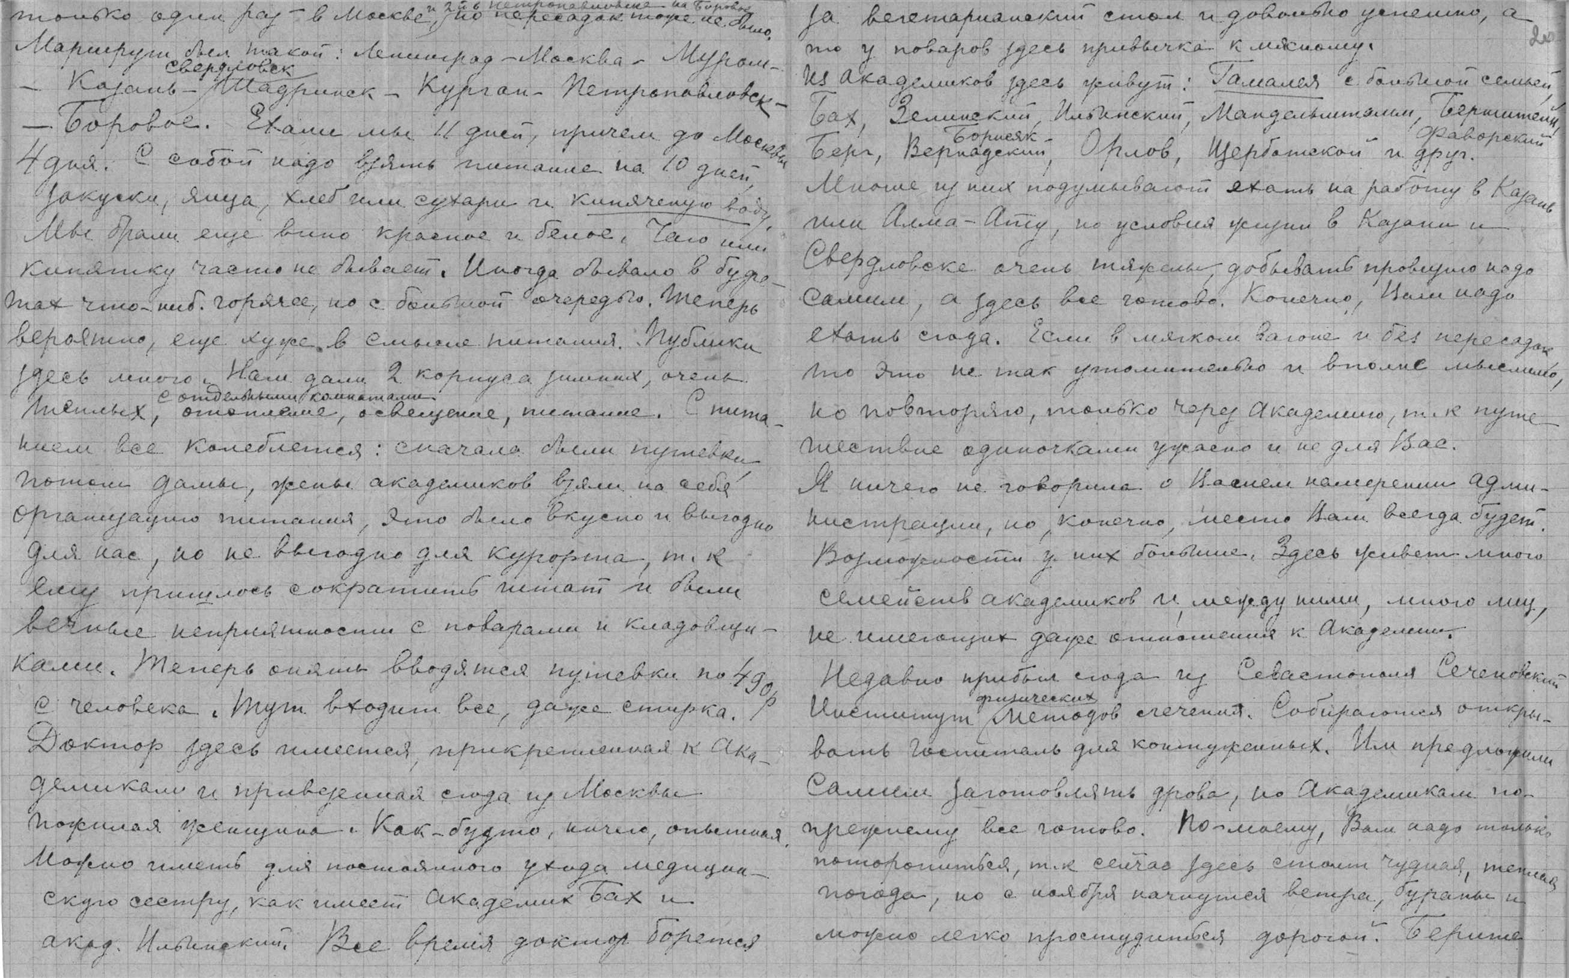 только один раз – в Москве, и 2й в Петропавловске на Боровое, но пересадок тоже не было.
Маршрут был такой: Ленинград – Москва – Муром –
– Казань – Свердловск Шадринск – Курган – Петропавловск –
– Боровое. Ехали мы 11 дней, причем до Москвы
4 дня. С собой надо взять питание на 10 дней,
закуски, яйца, хлеб или сухари и кипяченую воду.
Мы брали еще вино красное и белое. Чаю или
кипятку часто не бывает. Иногда бывало в буфе-
тах что-ниб. горячее, но с большой очередью. Теперь
вероятно, еще хуже в смысле питания. Публики
здесь много. Нам дали 2 корпуса зимних, очень
теплых, с отдельными комнатами отопление, освещение, питание. С пита-
нием все колеблется: сначала были путевки,
потом дамы, жены академиков взяли на себя
организацию питания, это было вкусно и выгодно
для нас, но не выгодно для курорта, т.к
ему пришлось сократить штат и были
вечные неприятности с поварами и кладовщи-
ками. Теперь опять вводятся путевки по 490 р
с человека. Тут входит все, даже стирка.
Доктор здесь имеется, прикрепленная к Ака-
демикам и привезенная сюда из Москвы
пожилая женщина. Как-будто, ничего, опытная.
Можно иметь для постоянного ухода медицин-
скую сестру, как имеет Академик Бах и
акад. Ильинский. Все время доктор борется
20
за вегетарианский стол и довольно успешно, а
то у поваров здесь привычка к мясному.
Из академиков здесь живут: Гамалея с большой семьей,
Бах, Зелинский, Ильинский, Мандельштам, Бернштейн,
Берг, Вернадский, Борисяк Орлов, Щербатской и Фаворский друг.
Многие из них подумывают ехать на работу в Казань
или Алма-Ату, но условия жизни в Казани и
Свердловске очень тяжелы, добывать провизию надо
самим, а здесь все готово. Конечно, Вам надо
ехать сюда. Если в мягком вагоне и без пересадок,
то это не так утомительно и вполне мыслимо,
но повторяю, только через Академию, т.к путе
шествие одиночками ужасно и не для Вас.
Я ничего не говорила о Вашем намерении адми-
нистрации, но, конечно, место Вам всегда будет.
Возможности у них большие. Здесь живет много
семейств академиков и, между ними, много лиц,
не имеющих даже отношения к Академии.
Недавно прибыл сюда из Севастополя Сеченовский
Институт физических Методов лечения. Собираются откры-
вать госпиталь для контуженных. Им предложили
самим заготовлять дрова, но Академикам по-
прежнему все готово. По-моему, Вам надо только
поторопиться, т.к сейчас здесь стоит чудная, теплая
погода, но с ноября начнутся ветра, бураны и
можно легко простудиться дорогой. Берите